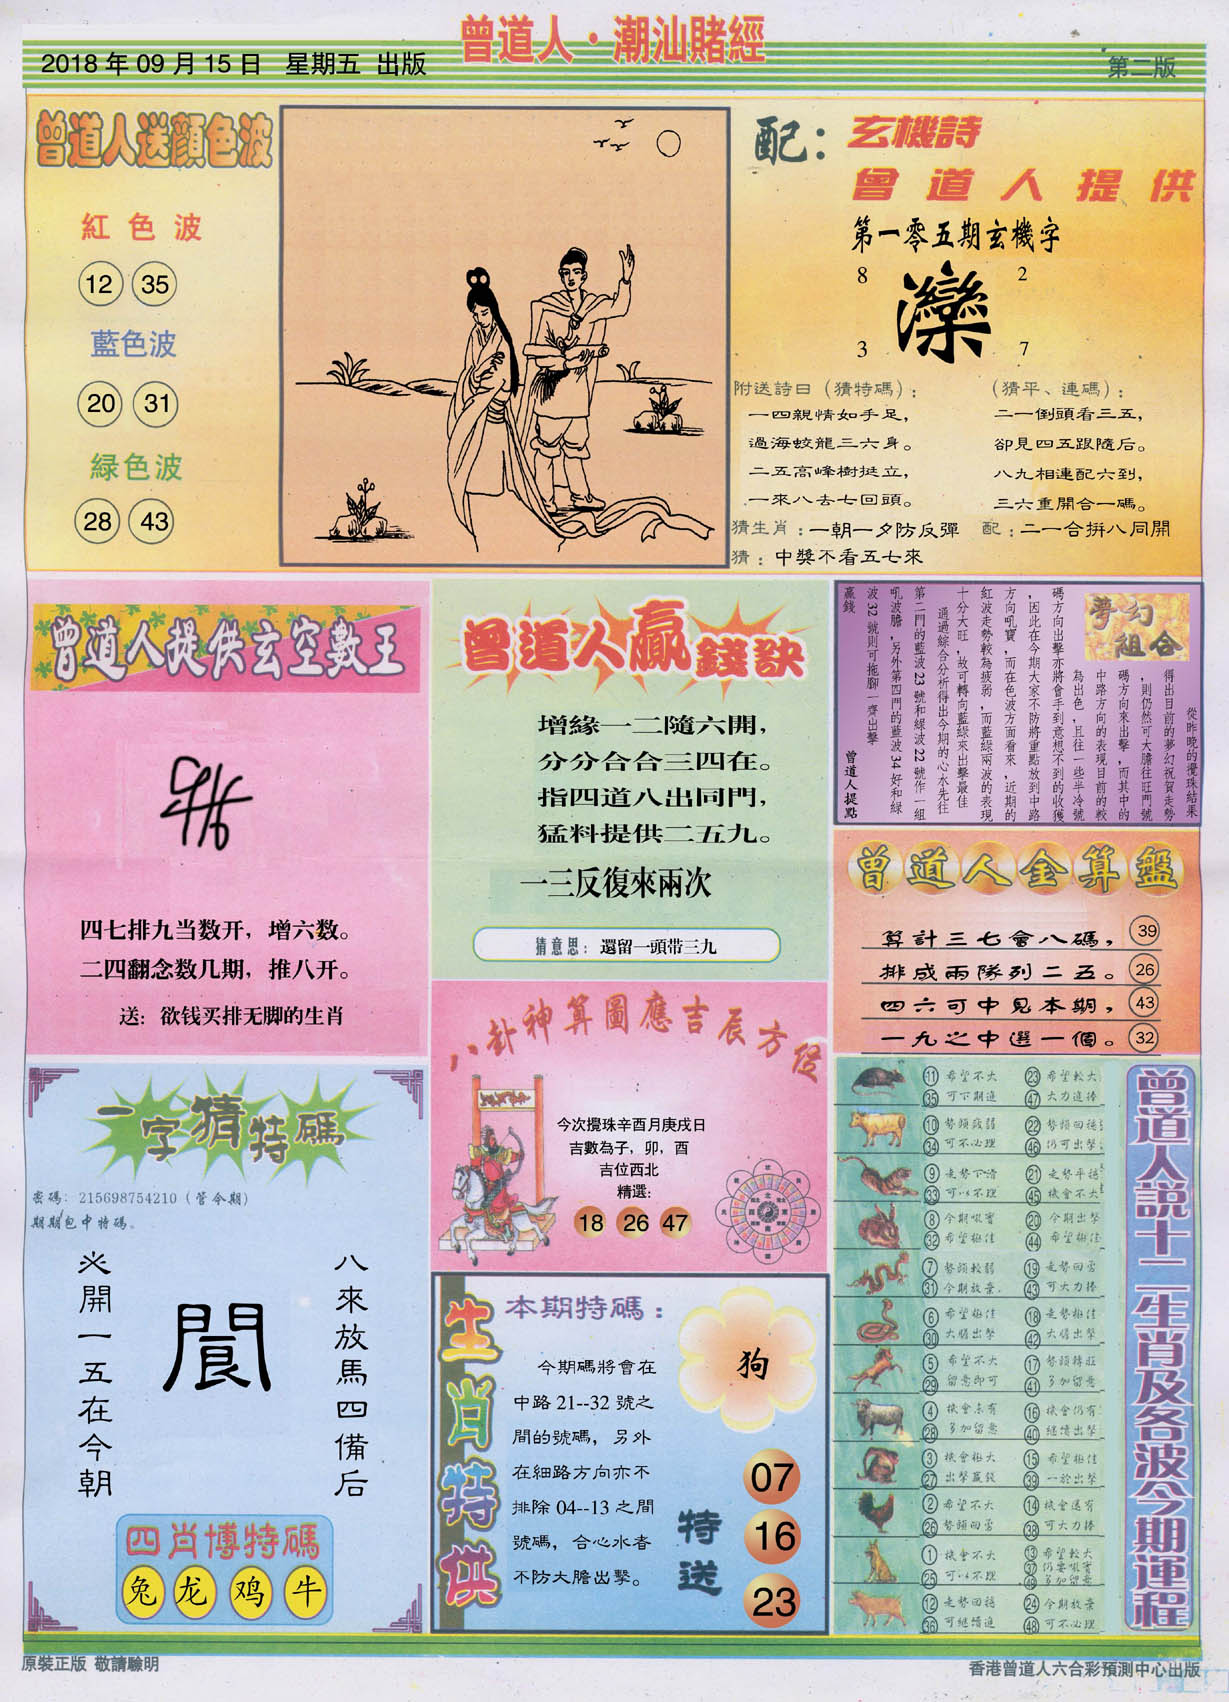 曾道人·潮汕賭經
2018年09月15日 星期五 出版
第二版
曾道人送顔色波
紅色波
12 35
藍色波
20 31
緑色波
28 43
配：玄機詩
曾道人提供
第一零五期玄機字
8 2
灤
3 7
附送詩曰（猜特碼）：
一四親情如手足，
過海蛟龍三六身。
二五高峰樹挺立，
一來八去七回頭。
（猜平、連碼）：
二一倒頭看三五，
卻見四五跟隨后。
八九相連配六到，
三六重開合一碼。
猜生肖：一朝一夕防反彈 配：二一合拚八同開
猜：中獎不看五七來
曾道人提供玄空數王
四七排九当数开，增六数。
二四翻念数几期，推八开。
送：欲钱买排无脚的生肖
曾道人贏錢訣
增緣一二隨六開，
分分合合三四在。
指四道八出同門，
猛料提供二五九。
一三反復來兩次
猜意思：還留一頭带三九
夢幻組合
從昨晚的攪珠結果
得出目前的夢幻祝賀走勢
，則仍然可大膽往旺門號
碼方向來出擊，而其中的
中路方向的表現目前的較
為出色，且往一些半冷號
碼方向出擊亦將會手到意想不到的收獲
，因此在今期大家不防將重點放到中路
方向吼寶，而在色波方面看來，近期的
紅波走勢較為疲弱，而藍綠兩波的表現
十分大旺，故可轉向藍綠來出擊最佳
通過綜合分析得出今期的心水先往
第二門的藍波23號和綠波22號作一組
吼波膽，另外第四門的藍波34好和綠
波32號則可拖腳一齊出擊
贏錢
曾道人提點
曾道人金算盤
算計三七會八碼， 39
排成兩隊列二五。 26
四六可中見本期， 43
一九之中選一個。 32
八卦神算圖應吉辰方位
今次攪珠辛酉月庚戌日
吉數為子，卯，酉
吉位西北
精選：
18 26 47
一字猜特碼
密碼：215698754210（管今期）
期期包中特碼。
八來放馬四備后
閬
必開一五在今朝
四肖博特碼
兔 龙 鸡 牛
生肖特供
本期特碼：
狗
今期碼將會在
中路21--32號之
間的號碼，另外
在細路方向亦不
排除04--13之間
號碼，合心水者
不防大膽出擊。
特送
07
16
23
曾道人說十二生肖及各波今期運程
11 希望不大 23 希望較大
35 可下期進 47 大力追捧
10 勢頭疲弱 22 勢頭回穩
34 可不必理 46 仍可出擊
9 走勢下滑 21 走勢平穩
33 可以不理 45 機會不大
8 今期吸寶 20 今期出擊
32 希望極佳 44 希望極佳
7 勢頭較弱 19 走勢回勇
31 今期放棄 43 可大力捧
6 希望極佳 18 走勢極佳
30 大膽出擊 42 大膽出擊
5 希望不大 17 勢頭轉旺
29 留意即可 41 多加留意
4 機會未有 16 機會仍有
28 多加留意 40 繼續出擊
3 機會極大 15 希望極佳
27 出擊贏錢 39 一於出擊
2 希望不大 14 機會還有
26 勢頭回勇 38 可大力捧
1 機會不大 13 希望較大
25 可以不理 37 仍要吸寶
49 多加留意
12 走勢回穩 24 今期放棄
36 可繼續進 48 可不必理
原裝正版 敬請驗明
香港曾道人六合彩預測中心出版